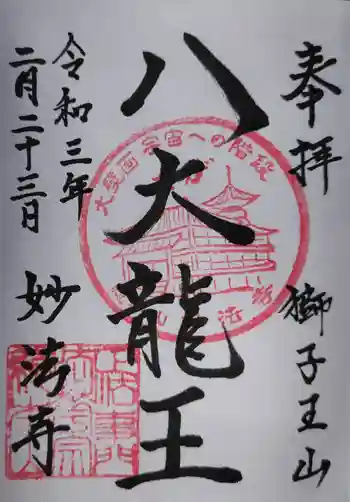 奉拝
獅子王山
八大龍王
大壁画宇宙への階段
令和三年
二月二十三日
妙法寺